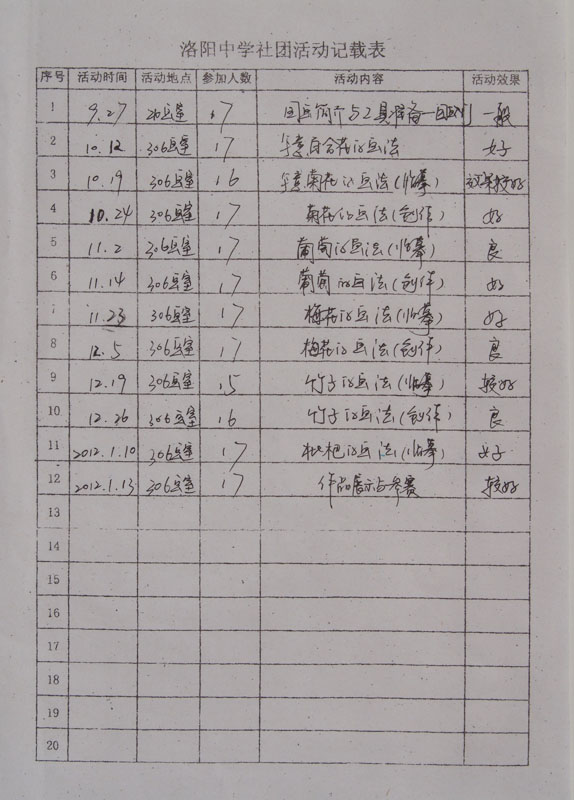 洛阳中学社团活动记载表
序号 活动时间 活动地点 参加人数 活动内容 活动效果
1 9.27 画室 17 国画简介与工具准备 一般
2 10.12 306画室 17 写意百合花的画法 好
3 10.19 306画室 16 写意菊花的画法(临摹) 效果较好
4 10.24 306画室 17 菊花的画法(创作) 好
5 11.2 306画室 17 葡萄的画法(临摹) 良
6 11.14 306画室 17 葡萄的画法(创作) 好
7 11.23 306画室 17 梅花的画法(临摹) 好
8 12.5 306画室 17 梅花的画法(创作) 良
9 12.19 306画室 15 竹子的画法(临摹) 较好
10 12.26 306画室 16 竹子的画法(创作) 良
11 2012.1.10 306画室 17 枇杷的画法(临摹) 好
12 2012.1.13 306画室 17 作品展示与参赛 较好
13
14
15
16
17
18
19
20